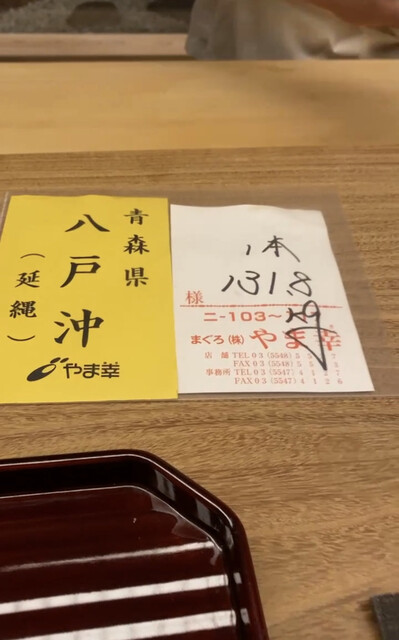 青森県
八戸沖
（延縄）
やま幸
1本
131.8
様
ニ-103～
まぐろ（株）やま幸
店舗 TEL 03 (5548)
FAX 03 (5548)
事務所 TEL 03 (5547) 4127
FAX 03 (5547) 4128